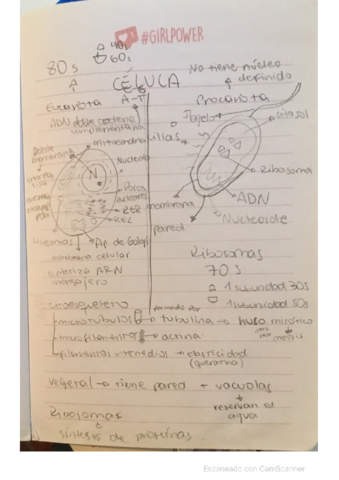 #GIRLPOWER
80s
40s
60s
No tiene núcleo
definido
CÉLULA
Eucariota
A-T
Procariota
ADN doble cadena
complementaria
mitocondria
Flagelo
citosol
Nucleolo
N
Ribosoma
Poros
nucleares
membrana
ADN
Nucleoide
pared
Ap. de Golgi
membrana celular
sintetiza ARN
mensajero
Ribosomas
70s
1 subunidad 30s
1 subunidad 50s
citoesqueleto
formado por
microtúbulos → tubulina → huso mitótico
microfilamentos → actina
filamentos intermedios → elasticidad
(queratina)
vegetal → tiene pared + vacuolas
reservan el
agua
Ribosomas
síntesis de proteínas
Escaneado con CamScanner